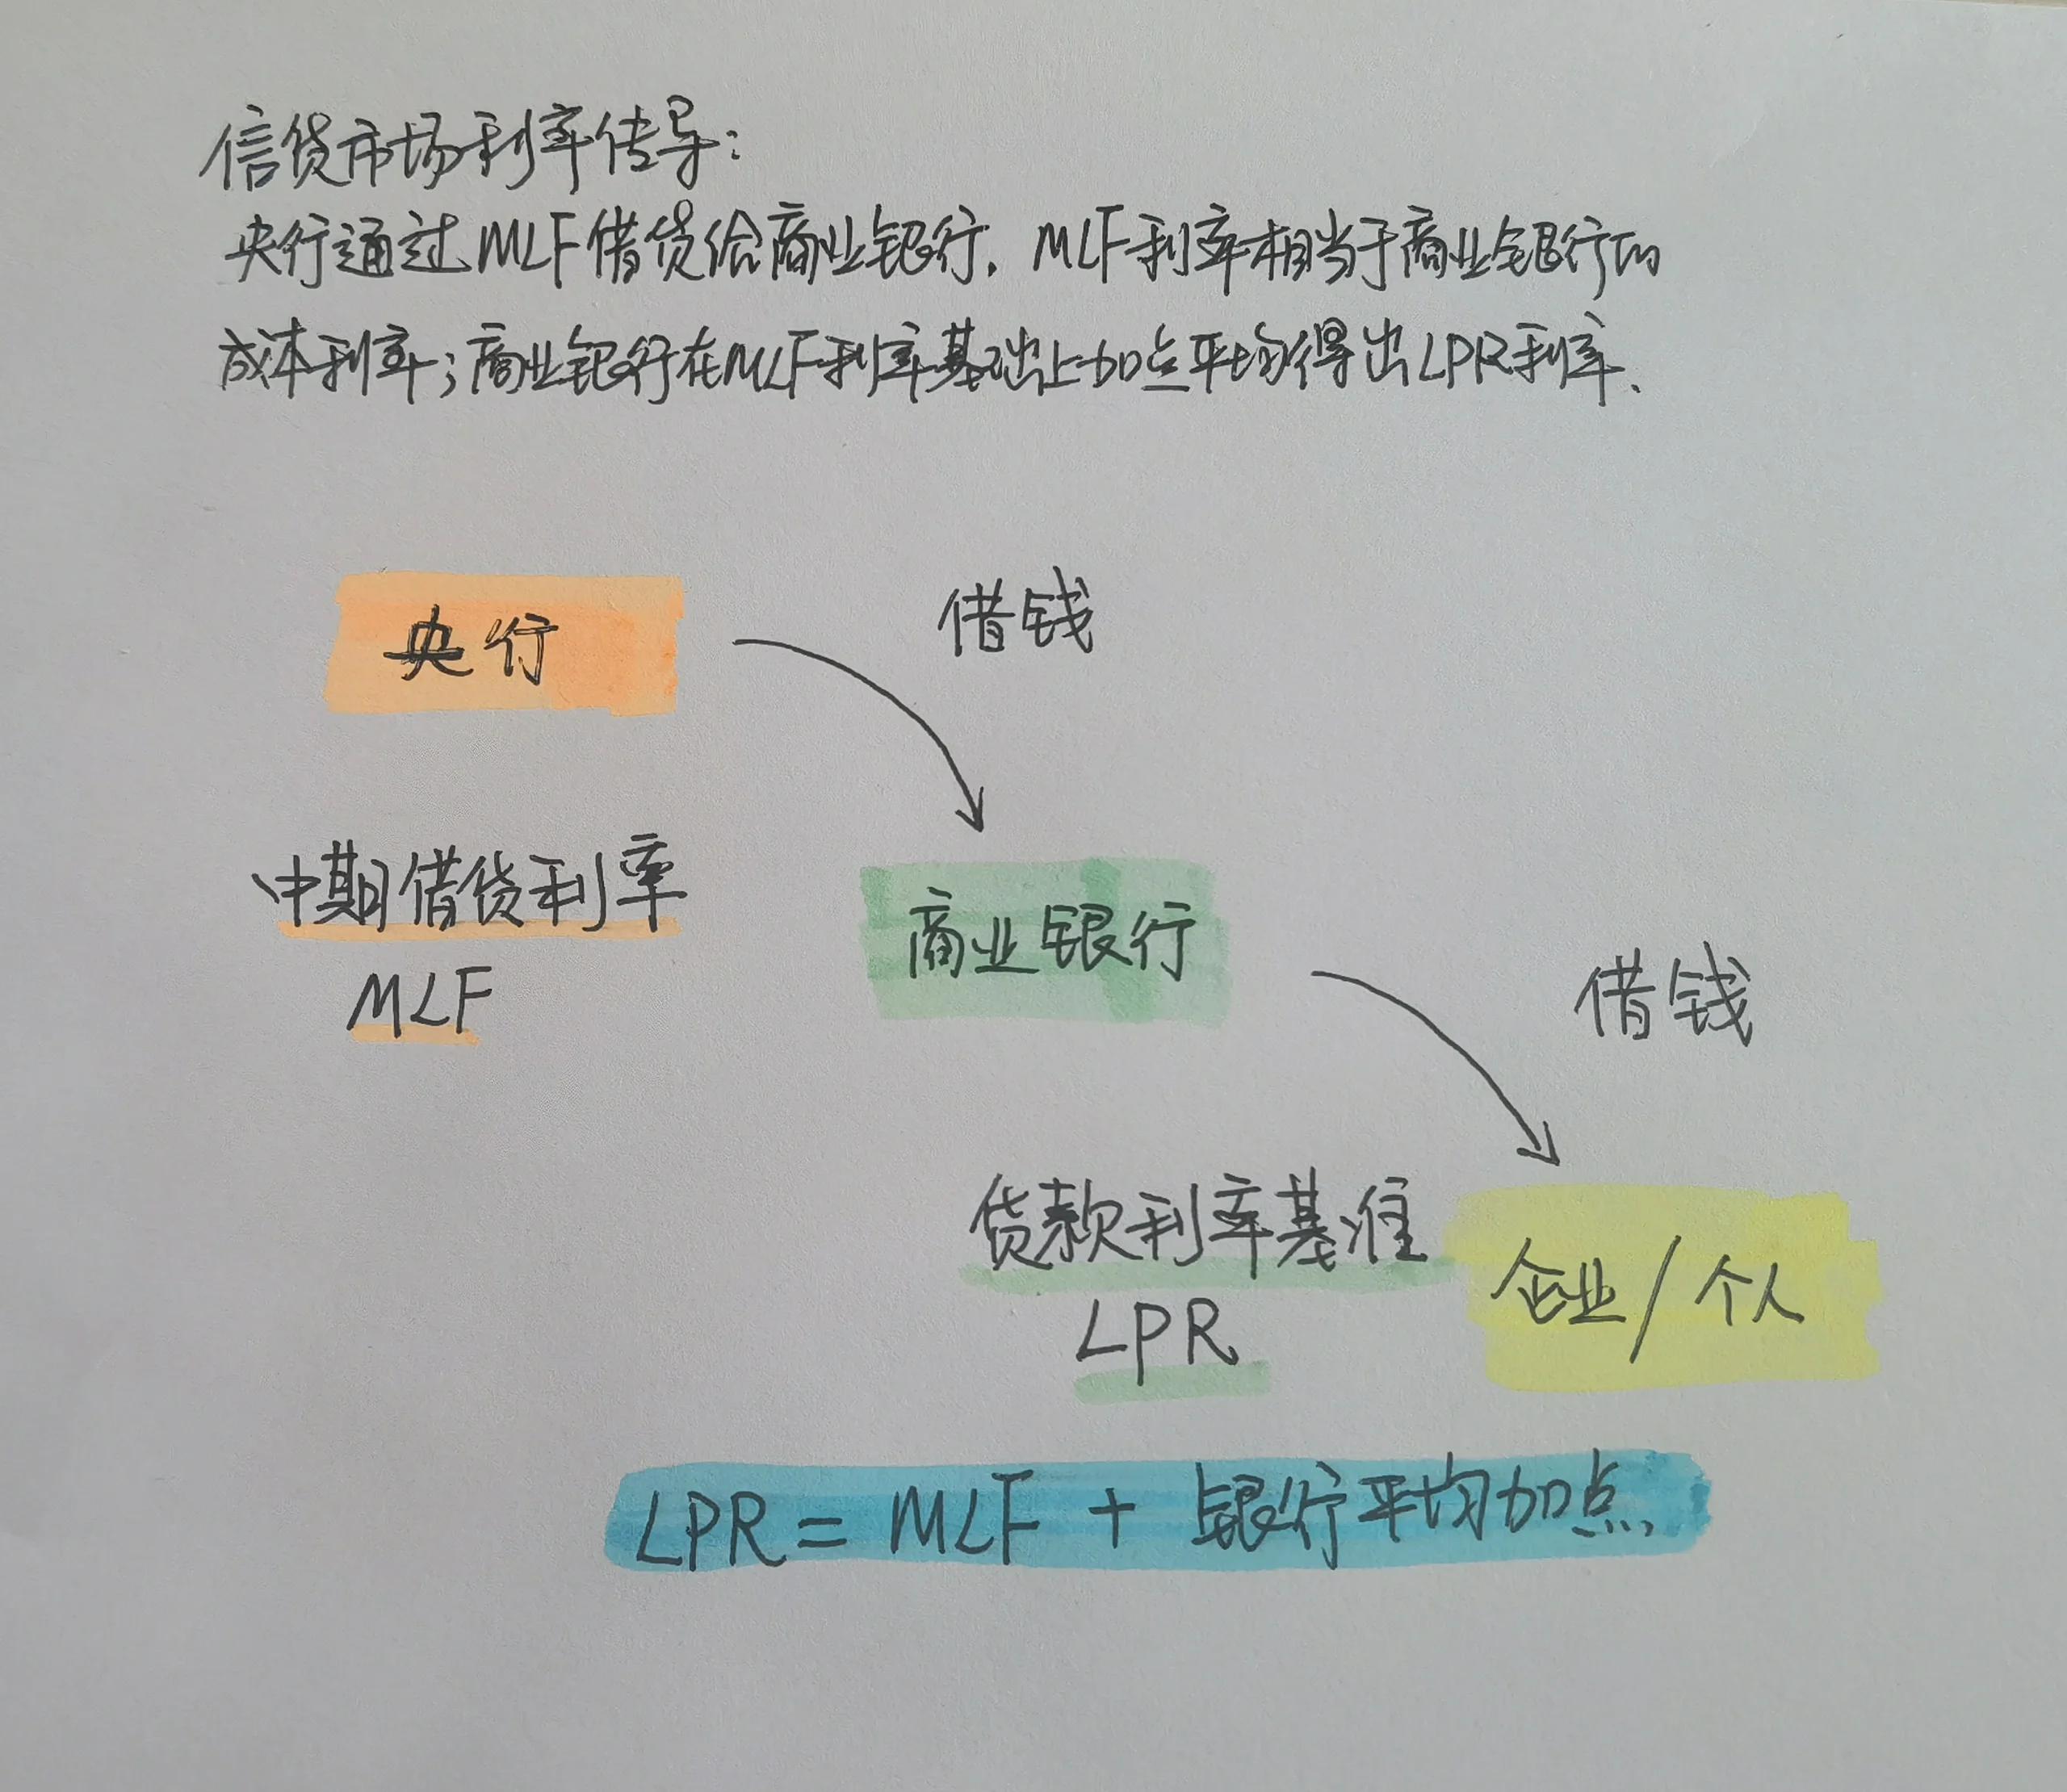 信贷市场利率传导：
央行通过MLF借贷给商业银行，MLF利率相当于商业银行的
成本利率；商业银行在MLF利率基础上加点平均得出LPR利率、
央行
借钱
中期借贷利率
MLF
商业银行
借钱
贷款利率基准
LPR
企业/个人
LPR = MLF + 银行平均加点